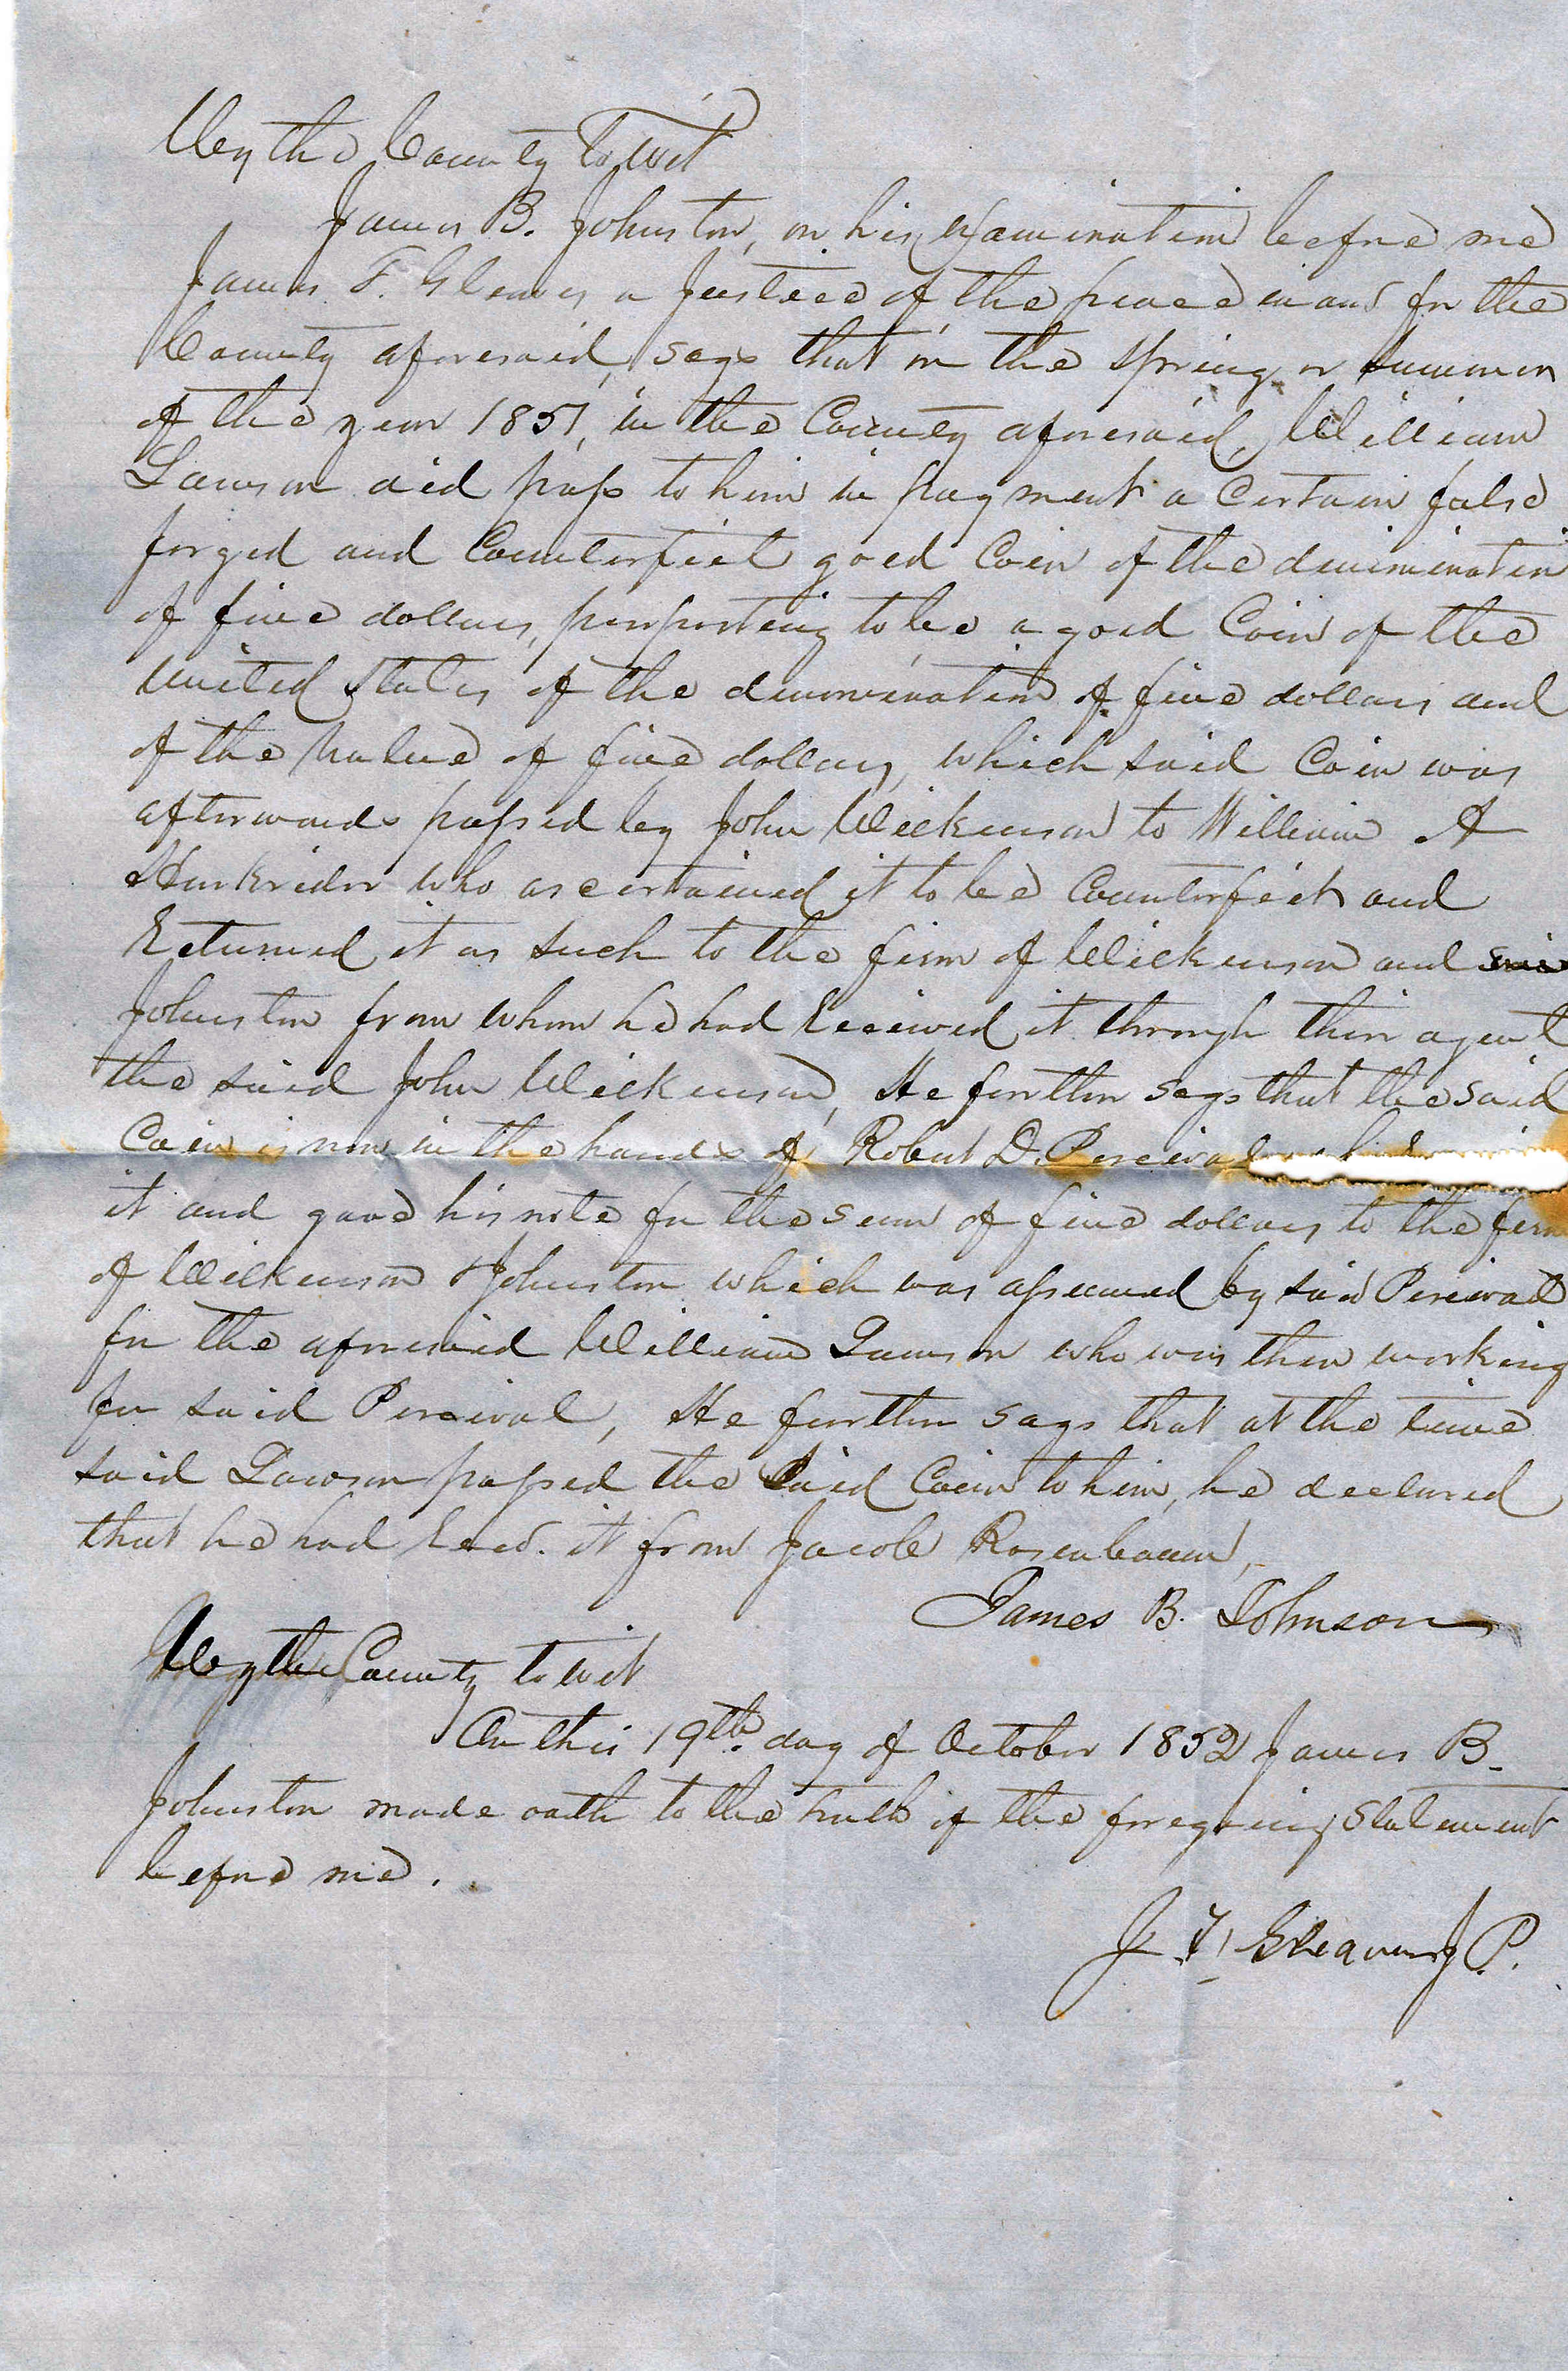 Wythe County To Wit
James B. Johnston, on his examination before me
James F. Gleaves a Justice of the peace in and for the
County aforesaid, says that in the Spring or Summer
of the year 1851, in the County aforesaid, William
Lawson did pass to him in payment a Certain false
forged and Counterfeit gold Coin of the denomination
of five dollars, purporting to be a gold Coin of the
United States of the denomination of five dollars and
of the value of five dollars, which said Coin was
afterwards passed by John Wilkinson to William A
Harkrider who ascertained it to be Counterfeit and
Returned it as Such to the firm of Wilkinson and
Johnston from whom he had Received it through their agent
the said John Wilkinson, He further Says that the said
Coin is now in the hands of Robert D. Percival
it and gave his note for the sum of five dollars to the firm
of Wilkinson & Johnston which was assumed by said Percival
for the aforesaid William Lawson who was then working
for said Percival, He further Says that at the time
said Lawson passed the Said Coin to him, he declared
that he had Recd. it from Jacob Rosenbaum,
James B. Johnson
Wythe County to wit
On this 19th day of October 1852 James B.
Johnston made oath to the truth of the foregoing Statement
before me.
J. F. Gleaves J. P.